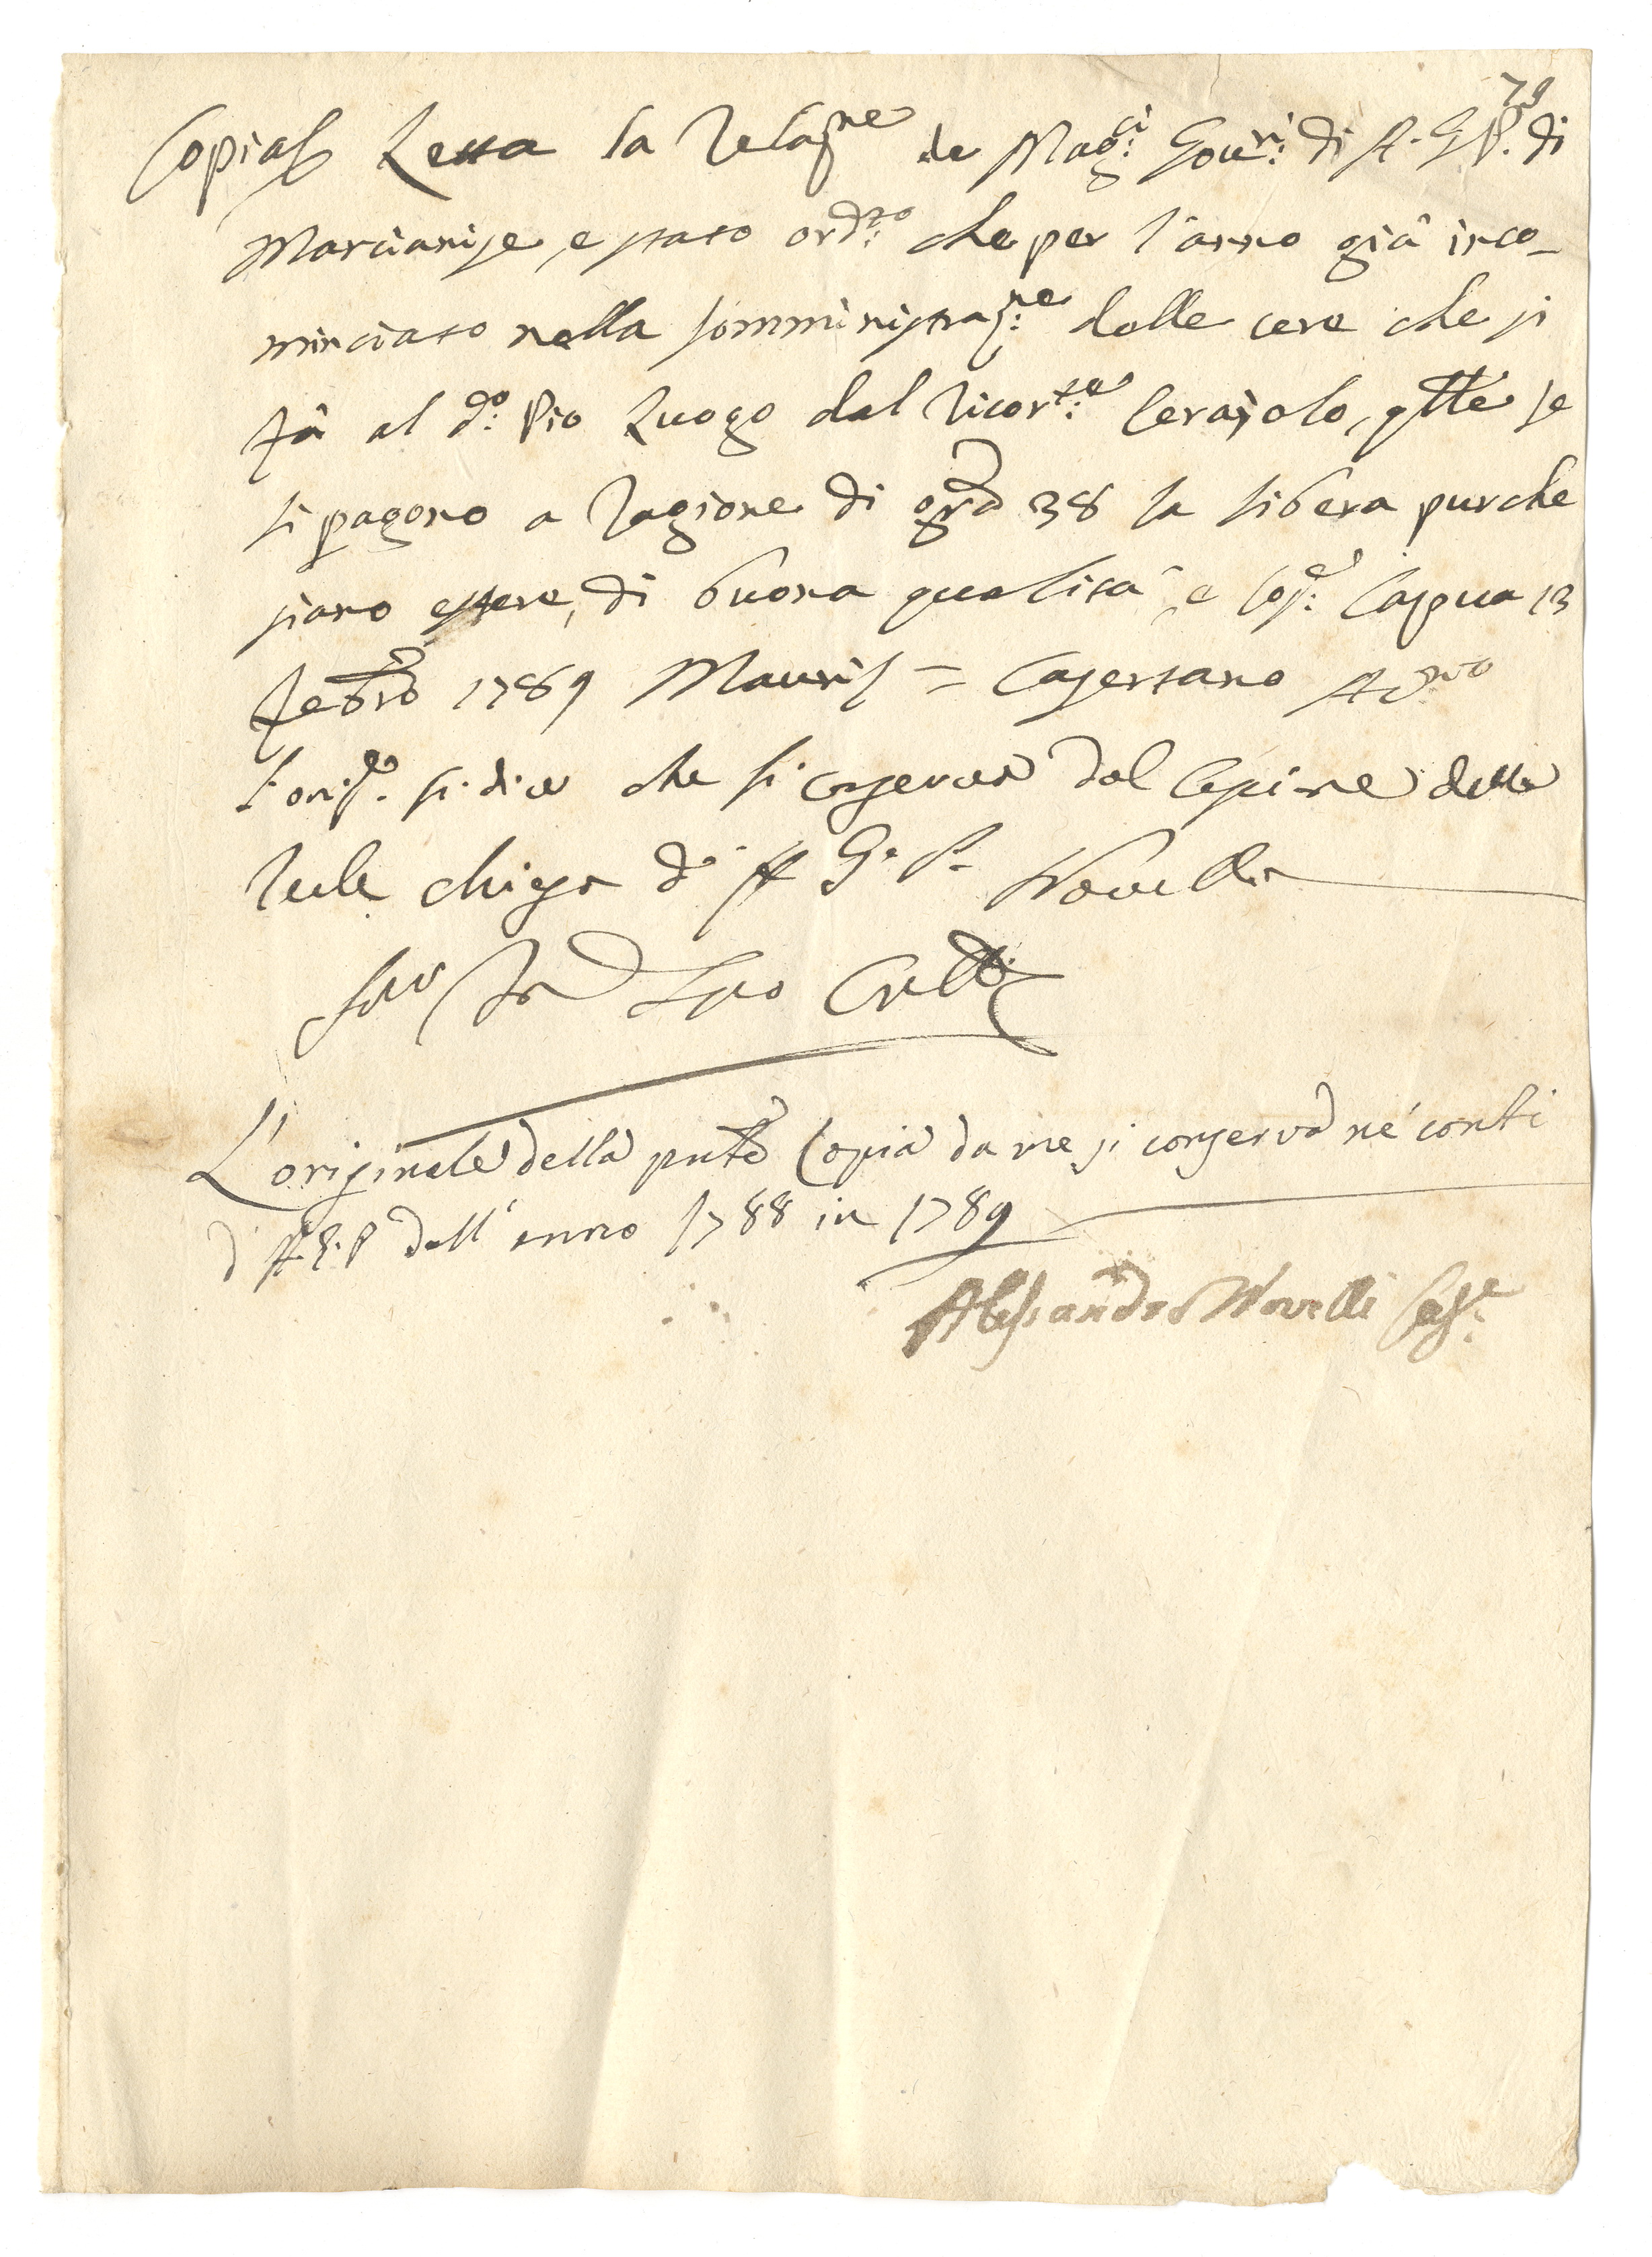 79
Copia Letta la Relaz.ne de Mag.ci Gover.ri di A. G. P. di
Marcianise, e stato ord.to che per l'anno già inco-
minciato nella somministraz.ne delle cere che si
fà al d.o Pio Luogo dal Ricor.te Cerajolo, qtte se
li pagono a ragione di grã 38 la libera purche
siano essere, di buona qualità, e Cosi. Capua 13
Febrõ 1789 Mauriz = Casertano Ad.rio
L'orig.le si dice che si conserva dal
chiesa d' A G. P. Novelli
L'originale della pnte Copia da me si conserva nè conti
d' A. G. P dell'anno 1788 in 1789
Alessandro Novelli Cass.e